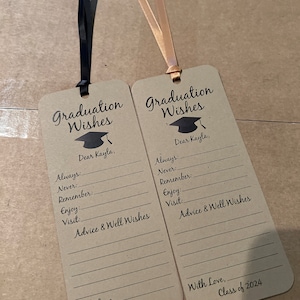 Graduation
Wishes
Dear Kayla,
Always
Never
Remember
Enjoy
Visit
Advice & Well Wishes
Graduation
Wishes
Dear Kayla,
Always
Never
Remember
Enjoy
Visit
Advice & Well Wishes
With Love,
Class of 2024